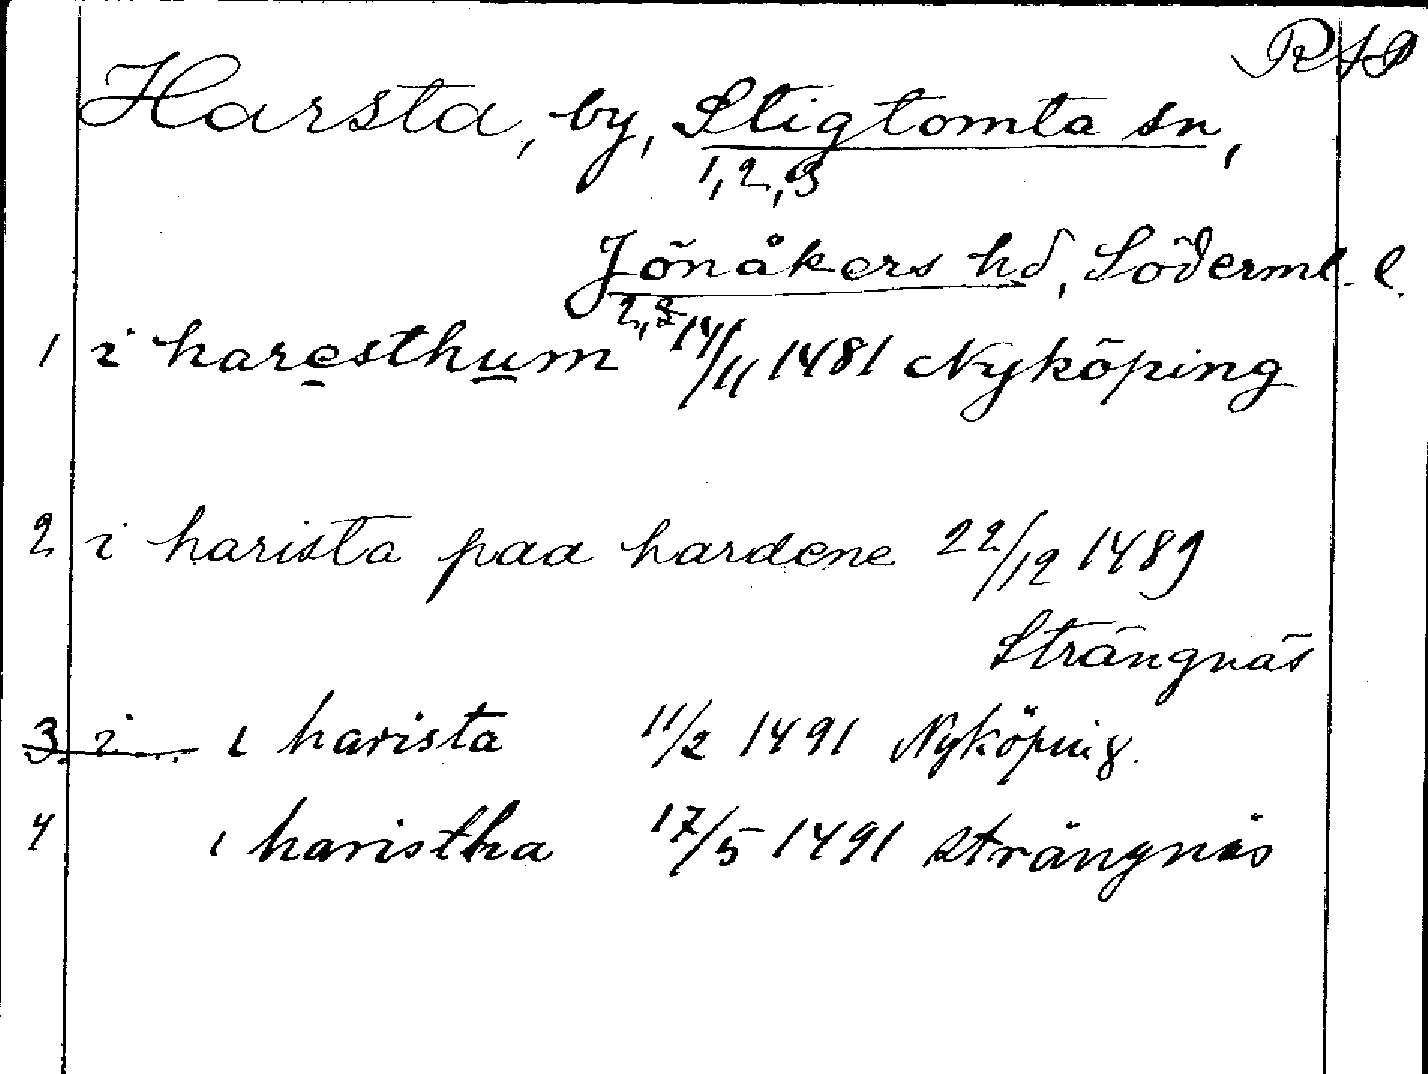 RAP
Harsta, by, Stigtomta sn,
1, 2, 3
Jönåkers hd, Söderml. l.
2, 3
1 i haresthum 14/11 1481 Nyköping
2 i harista paa hardene 22/12 1489
Strängnäs
3. i ı harista 11/2 1491 Nyköping.
4 ı haristha 17/5 1491 Strängnäs